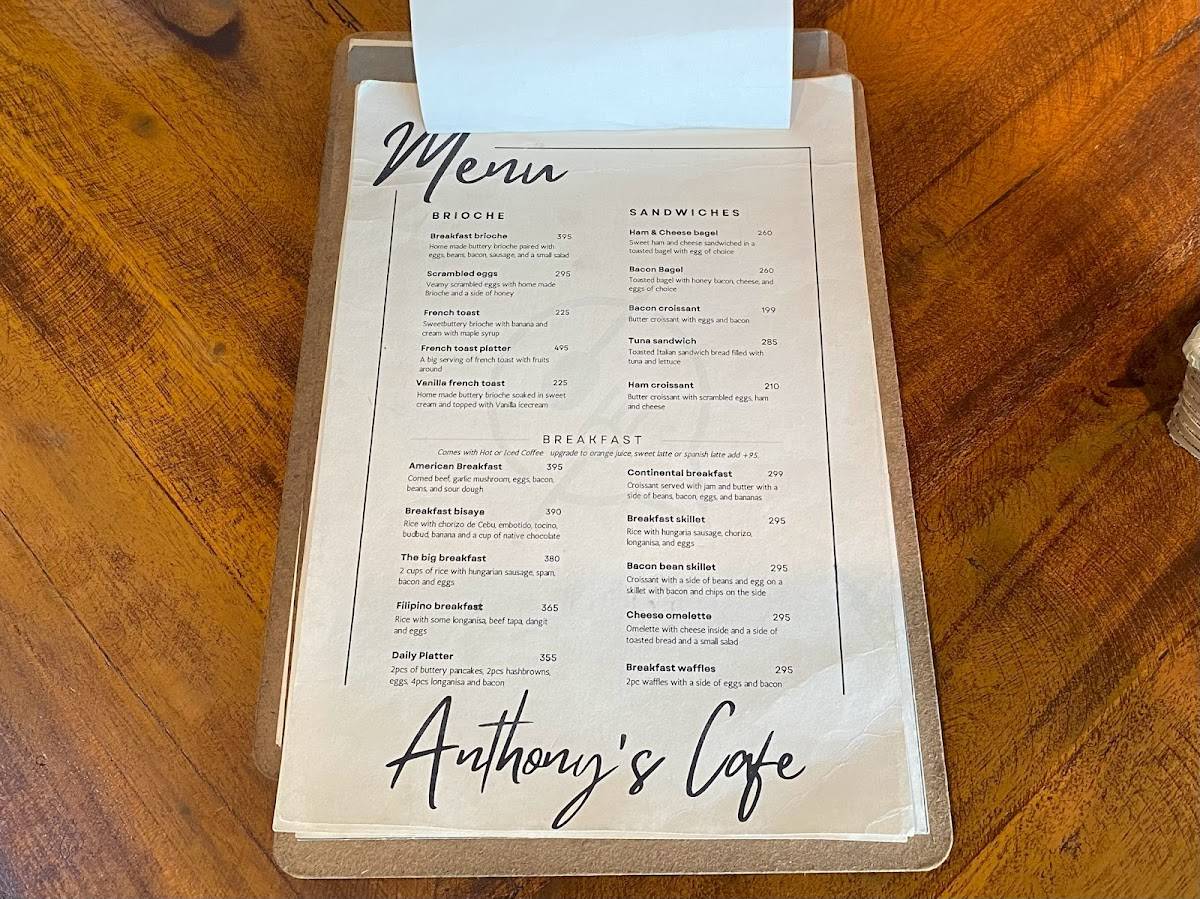 Menu
BRIOCHE
Breakfast brioche 395
Home made buttery brioche paired with
eggs, beans, bacon, sausage, and a small salad
Scrambled eggs 295
Veamy scrambled eggs with home made
Brioche and a side of honey
French toast 225
Sweetbuttery brioche with banana and
cream with maple syrup
French toast platter 495
A big serving of french toast with fruits
around
Vanilla french toast 225
Home made buttery brioche soaked in sweet
cream and topped with Vanilla icecream
SANDWICHES
Ham & Cheese bagel 260
Sweet ham and cheese sandwiched in a
toasted bagel with egg of choice
Bacon Bagel 260
Toasted bagel with honey bacon, cheese, and
eggs of choice
Bacon croissant 199
Butter croissant with eggs and bacon
Tuna sandwich 285
Toasted Italian sandwich bread filled with
tuna and lettuce
Ham croissant 210
Butter croissant with scrambled eggs, ham
and cheese
BREAKFAST
Comes with Hot or Iced Coffee upgrade to orange juice, sweet latte or spanish latte add +95.
American Breakfast 395
Corned beef, garlic mushroom, eggs, bacon,
beans, and sour dough
Breakfast bisaya 390
Rice with chorizo de Cebu, embotido, tocino,
budbud, banana and a cup of native chocolate
The big breakfast 380
2 cups of rice with hungarian sausage, spam,
bacon and eggs
Filipino breakfast 365
Rice with some longanisa, beef tapa, dangit
and eggs
Daily Platter 355
2pcs of buttery pancakes, 2pcs hashbrowns,
eggs, 4pcs longanisa and bacon
Continental breakfast 299
Croissant served with jam and butter with a
side of beans, bacon, eggs, and bananas
Breakfast skillet 295
Rice with hungaria sausage, chorizo,
longanisa, and eggs
Bacon bean skillet 295
Croissant with a side of beans and egg on a
skillet with bacon and chips on the side
Cheese omelette 295
Omelette with cheese inside and a side of
toasted bread and a small salad
Breakfast waffles 295
2pc waffles with a side of eggs and bacon
Anthony's Cafe